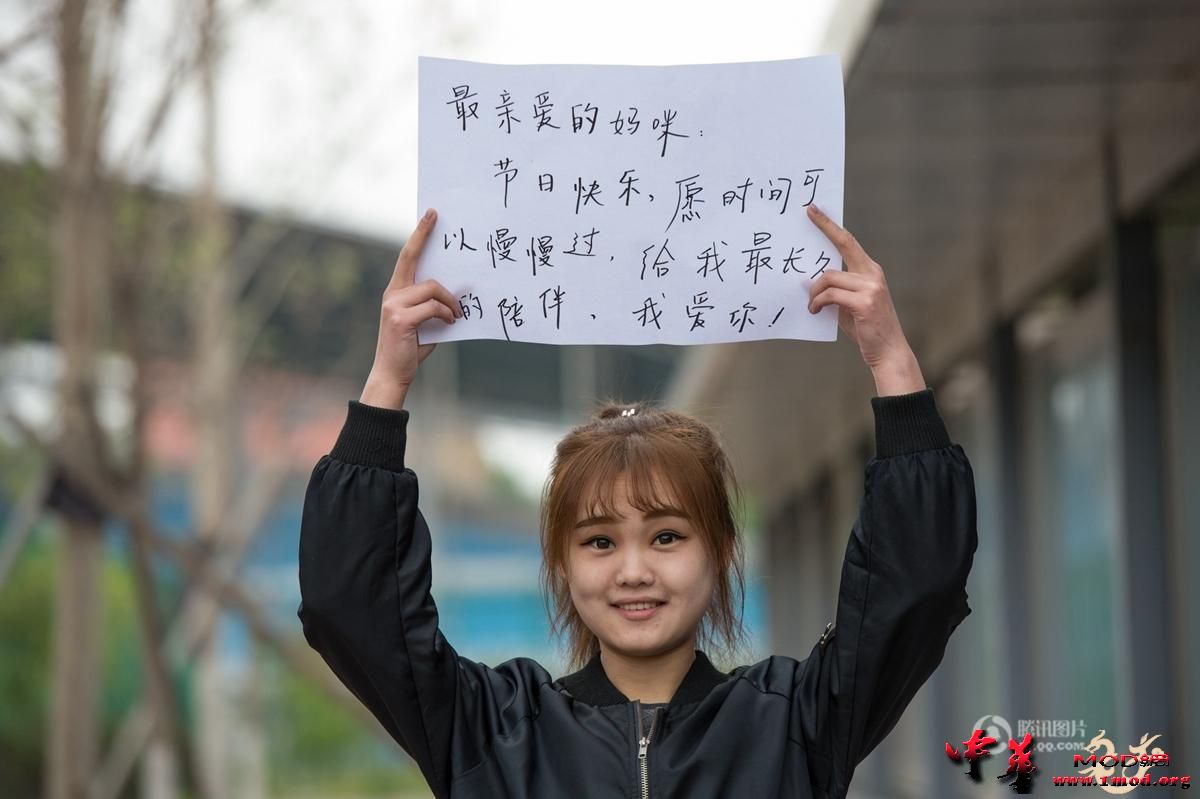 最亲爱的妈咪：
节日快乐，愿时间可
以慢慢过，给我最长久
的陪伴、我爱你！
腾讯图片
QQ.COM
中华
MOD
www.1mod.org